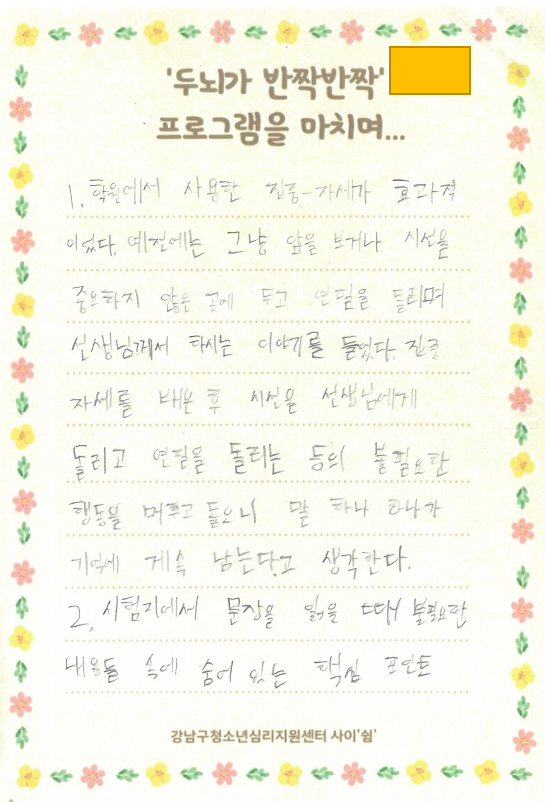 '두뇌가 반짝반짝'
프로그램을 마치며...
1. 학원에서 사용한 집중-자세가 효과적
이었다. 예전에는 그냥 앞을 보거나 시선을
중요하지 않은 곳에 두고 연필을 돌리며
선생님께서 하시는 이야기를 들었다. 집중
자세를 배운 후 시선을 선생님에게
돌리고 연필을 돌리는 등의 불필요한
행동을 멈추고 들으니 말 하나 하나가
기억에 계속 남는다고 생각한다.
2. 시험지에서 문장을 읽을 때 불필요한
내용들 속에 숨어 있는 핵심 포인트
강남구청소년심리지원센터 사이'쉼'